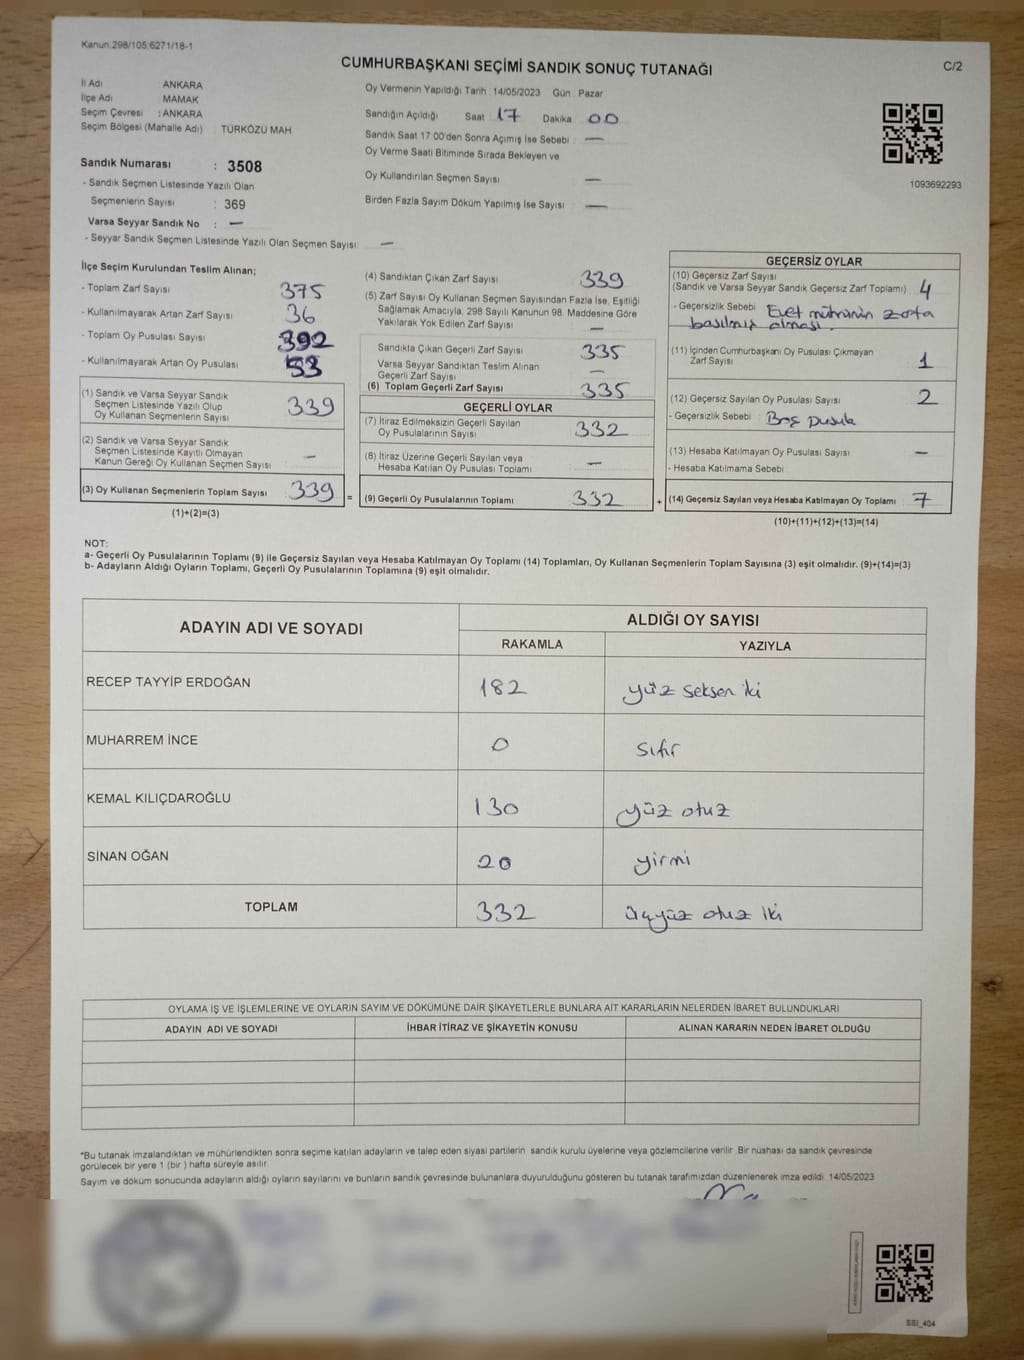 Kanun.298/105,6271/18-1
CUMHURBAŞKANI SEÇİMİ SANDIK SONUÇ TUTANAĞI
C/2
İl Adı ANKARA
İlçe Adı MAMAK
Seçim Çevresi : ANKARA
Seçim Bölgesi (Mahalle Adı) TÜRKÖZÜ MAH
Sandık Numarası : 3508
- Sandık Seçmen Listesinde Yazılı Olan
Seçmenlerin Sayısı : 369
Varsa Seyyar Sandık No : —
- Seyyar Sandık Seçmen Listesinde Yazılı Olan Seçmen Sayısı —
Oy Vermenin Yapıldığı Tarih 14/05/2023 Gün : Pazar
Sandığın Açıldığı Saat 17 Dakika 00
Sandık Saat 17:00'den Sonra Açımış İse Sebebi —
Oy Verme Saati Bitiminde Sırada Bekleyen ve
Oy Kullandırılan Seçmen Sayısı —
Birden Fazla Sayım Döküm Yapılmış İse Sayısı —
1093692293
İlçe Seçim Kurulundan Teslim Alınan;
- Toplam Zarf Sayısı 375
- Kullanılmayarak Artan Zarf Sayısı 36
- Toplam Oy Pusulası Sayısı 392
- Kullanılmayarak Artan Oy Pusulası 53
(1) Sandık ve Varsa Seyyar Sandık
Seçmen Listesinde Yazılı Olup
Oy Kullanan Seçmenlerin Sayısı 339
(2) Sandık ve Varsa Seyyar Sandık
Seçmen Listesinde Kayıtlı Olmayan
Kanun Gereği Oy Kullanan Seçmen Sayısı —
(3) Oy Kullanan Seçmenlerin Toplam Sayısı 339 =
(1)+(2)=(3)
(4) Sandıktan Çıkan Zarf Sayısı 339
(5) Zarf Sayısı Oy Kullanan Seçmen Sayısından Fazla İse, Eşitliği
Sağlamak Amacıyla, 298 Sayılı Kanunun 98. Maddesine Göre
Yakılarak Yok Edilen Zarf Sayısı —
Sandıkta Çıkan Geçerli Zarf Sayısı 335
Varsa Seyyar Sandıktan Teslim Alınan
Geçerli Zarf Sayısı —
(6) Toplam Geçerli Zarf Sayısı 335
GEÇERLİ OYLAR
(7) İtiraz Edilmeksizin Geçerli Sayılan
Oy Pusulalarının Sayısı 332
(8) İtiraz Üzerine Geçerli Sayılan veya
Hesaba Katılan Oy Pusulası Toplamı —
(9) Geçerli Oy Pusulalarının Toplamı 332 +
GEÇERSİZ OYLAR
(10) Geçersiz Zarf Sayısı
(Sandık ve Varsa Seyyar Sandık Geçersiz Zarf Toplamı) 4
- Geçersizlik Sebebi Evet mührünün zarfa
basılmış olması.
(11) İçinden Cumhurbaşkanı Oy Pusulası Çıkmayan
Zarf Sayısı 1
(12) Geçersiz Sayılan Oy Pusulası Sayısı 2
- Geçersizlik Sebebi Boş pusula
(13) Hesaba Katılmayan Oy Pusulası Sayısı —
- Hesaba Katılmama Sebebi
(14) Geçersiz Sayılan veya Hesaba Katılmayan Oy Toplamı 7
(10)+(11)+(12)+(13)=(14)
NOT:
a- Geçerli Oy Pusulalarının Toplamı (9) ile Geçersiz Sayılan veya Hesaba Katılmayan Oy Toplamı (14) Toplamları, Oy Kullanan Seçmenlerin Toplam Sayısına (3) eşit olmalıdır. (9)+(14)=(3)
b- Adayların Aldığı Oyların Toplamı, Geçerli Oy Pusulalarının Toplamına (9) eşit olmalıdır.
ADAYIN ADI VE SOYADI ALDIĞI OY SAYISI
RAKAMLA YAZIYLA
RECEP TAYYİP ERDOĞAN 182 yüz seksen iki
MUHARREM İNCE 0 sıfır
KEMAL KILIÇDAROĞLU 130 yüz otuz
SİNAN OĞAN 20 yirmi
TOPLAM 332 üçyüz otuz iki
OYLAMA İŞ VE İŞLEMLERİNE VE OYLARIN SAYIM VE DÖKÜMÜNE DAİR ŞİKAYETLERLE BUNLARA AİT KARARLARIN NELERDEN İBARET BULUNDUKLARI
ADAYIN ADI VE SOYADI İHBAR İTİRAZ VE ŞİKAYETİN KONUSU ALINAN KARARIN NEDEN İBARET OLDUĞU
*Bu tutanak imzalandıktan ve mühürlendikten sonra seçime katılan adayların ve talep eden siyasi partilerin sandık kurulu üyelerine veya gözlemcilerine verilir. Bir nüshası da sandık çevresinde
görülecek bir yere 1 (bir ) hafta süreyle asılır.
Sayım ve döküm sonucunda adayların aldığı oyların sayılarını ve bunların sandık çevresinde bulunanlara duyurulduğunu gösteren bu tutanak tarafımızdan düzenlenerek imza edildi. 14/05/2023
SSI_404